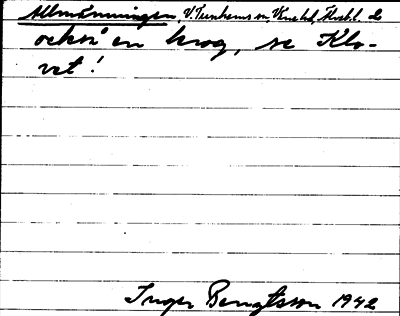 Allmänningen, V. Tunhems sn, Väne hd,
också en krog, se Klo-
vet!
Inger Bengtsson 1942